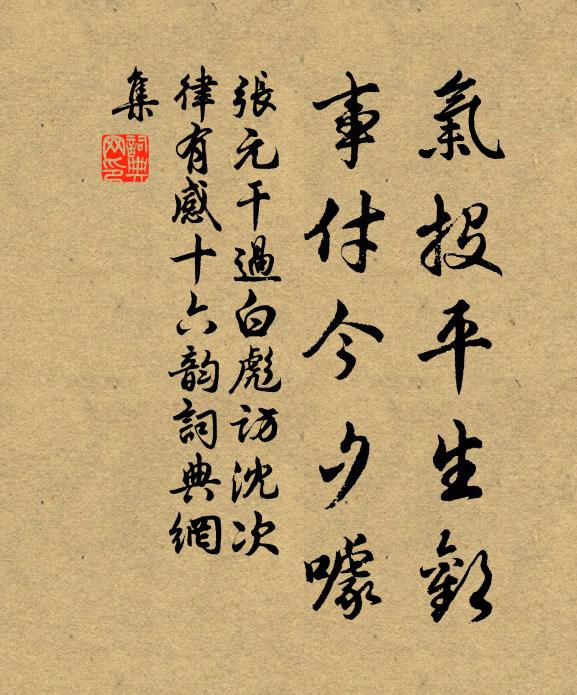 氣投平生歡
事付今夕噱
張元干過白彪訪沈次
律有感十六韵詞典網
集
詞典
网印